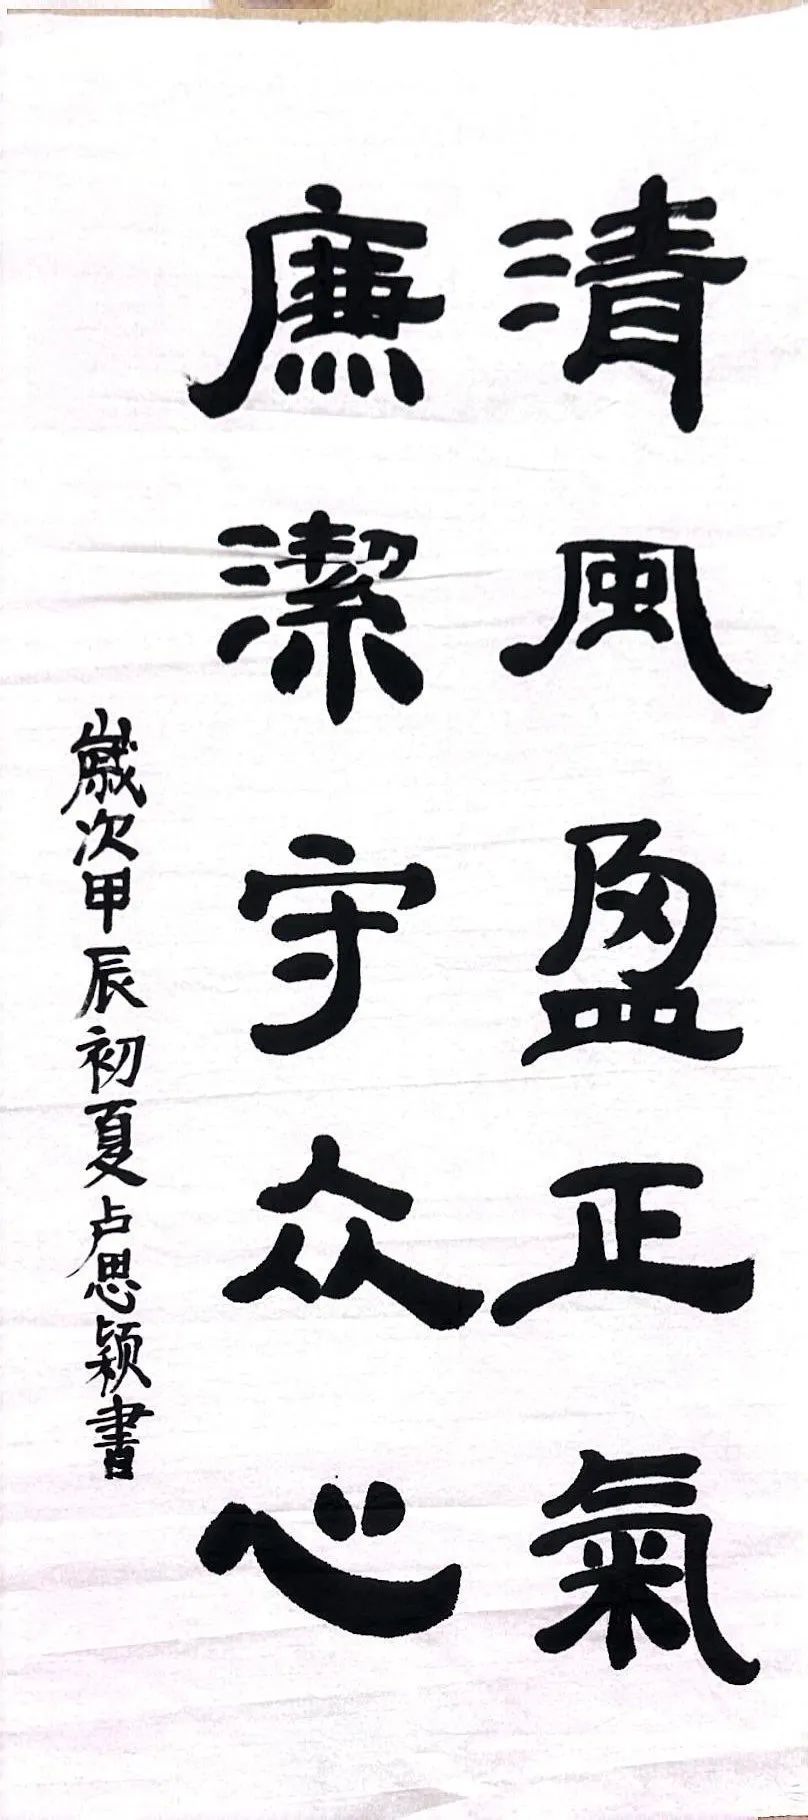 清風盈正氣
廉潔守众心
歲次甲辰初夏卢思颖書